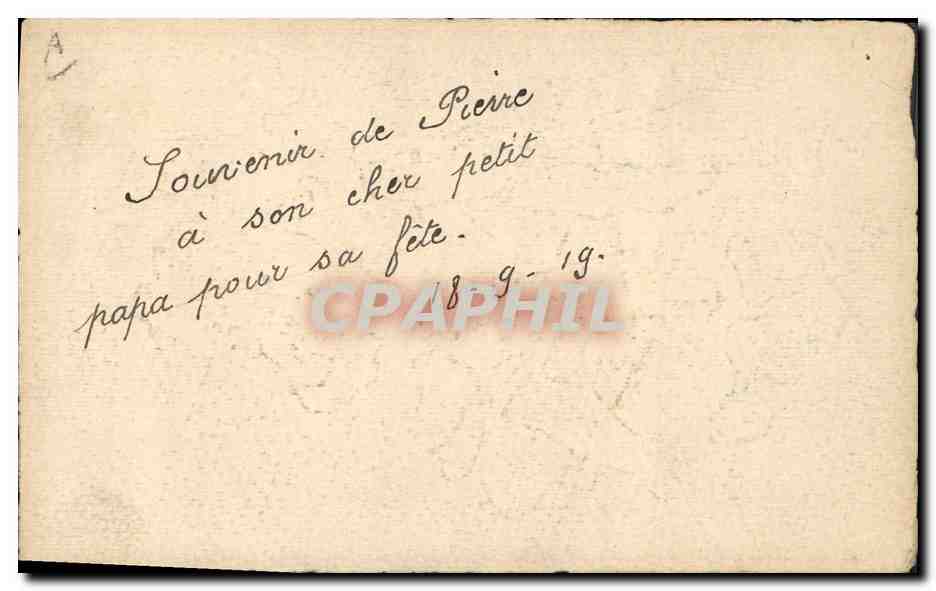 A
Souvenir de Pierre
à son cher petit
papa pour sa fête.
18-9-19.
CPAPHIL